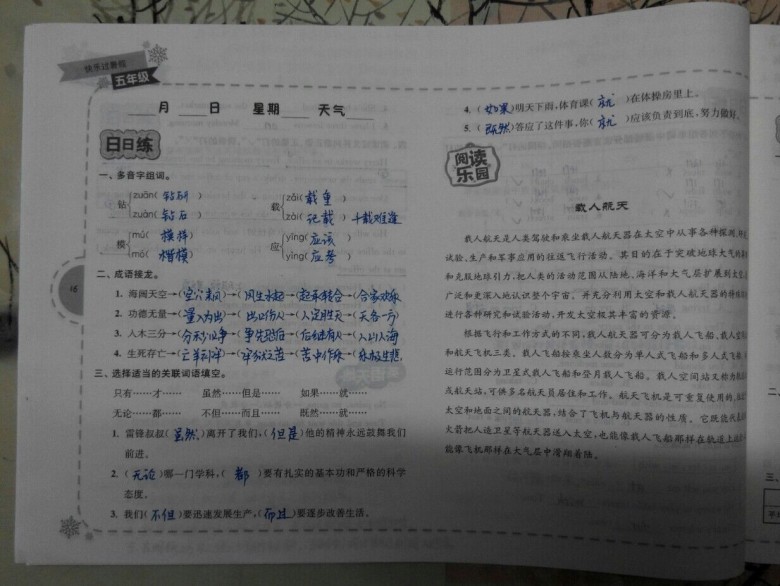 快乐过暑假
五年级
月 日 星期 天气
日日练
一、多音字组词。
钻 zuān(钻研)
zuàn(钻石)
载 zǎi(载重)
zài(记载) 千载难逢
模 mú(模样)
mó(楷模)
应 yīng(应该)
yìng(应考)
二、成语接龙。
1. 海阔天空→(空穴来风)→(风生水起)→(起承转合)→(合家欢乐
2. 功德无量→(量入为出)→(出口伤人)→(人定胜天)→(天各一方)
3. 入木三分→(分秒必争)→(争先恐后)→(后继有人)→(人山人海
4. 生死存亡→(亡羊补牢)→(牢不)→(苦中作乐)→(乐极生悲
三、选择适当的关联词语填空。
只有……才…… 虽然……但是…… 如果……就……
无论……都…… 不但……而且…… 既然……就……
1. 雷锋叔叔(虽然)离开了我们,(但是)他的精神永远鼓舞我们
前进。
2. (无论)哪一门学科,(都)要有扎实的基本功和严格的科学
态度。
3. 我们(不但)要迅速发展生产,(而且)要逐步改善生活。
16
4. (如果)明天下雨,体育课(就)在体操房里上。
5. (既然)答应了这件事,你(就)应该负责到底,努力做好。
阅读乐园
载人航天
载人航天是人类驾驶和乘坐载人航天器在太空中从事各种探测、
试验、生产和军事应用的往返飞行活动。其目的在于突破地球大气的
和克服地球引力,把人类的活动范围从陆地、海洋和大气层扩展到太
广泛和更深入地认识整个宇宙。并充分利用太空和载人航天器的特殊
进行各种研究和试验活动,开发太空极其丰富的资源。
根据飞行和工作方式的不同,载人航天器可分为载人飞船、载人空间
和航天飞机三类。载人飞船按乘坐人数分为单人式飞船和多人式飞船
运行范围分为卫星式载人飞船和登月载人飞船。载人空间站又称为
或航天站,可供多名航天员居住和工作。航天飞机是可重复使用的,
太空和地面之间的航天器,结合了飞机与航天器的性质。它既能代
火箭把人造卫星等航天器送入太空,也能像载人飞船那样在轨道上
能像飞机那样在大气层中滑翔着陆。
二、
三、